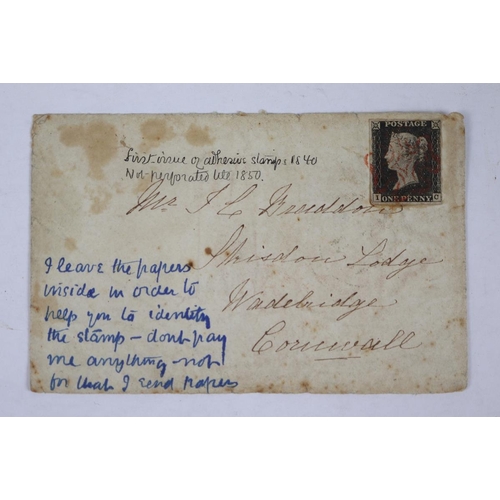 POSTAGE
I ONE PENNY C
First issue of adhesive stamps 1840
Not perforated till 1850.
Mr J C
Lodge
Wadebridge
Cornwall
I leave the papers
inside in order to
help you to identify
the stamp – dont pay
me anything – not
for that I send papers